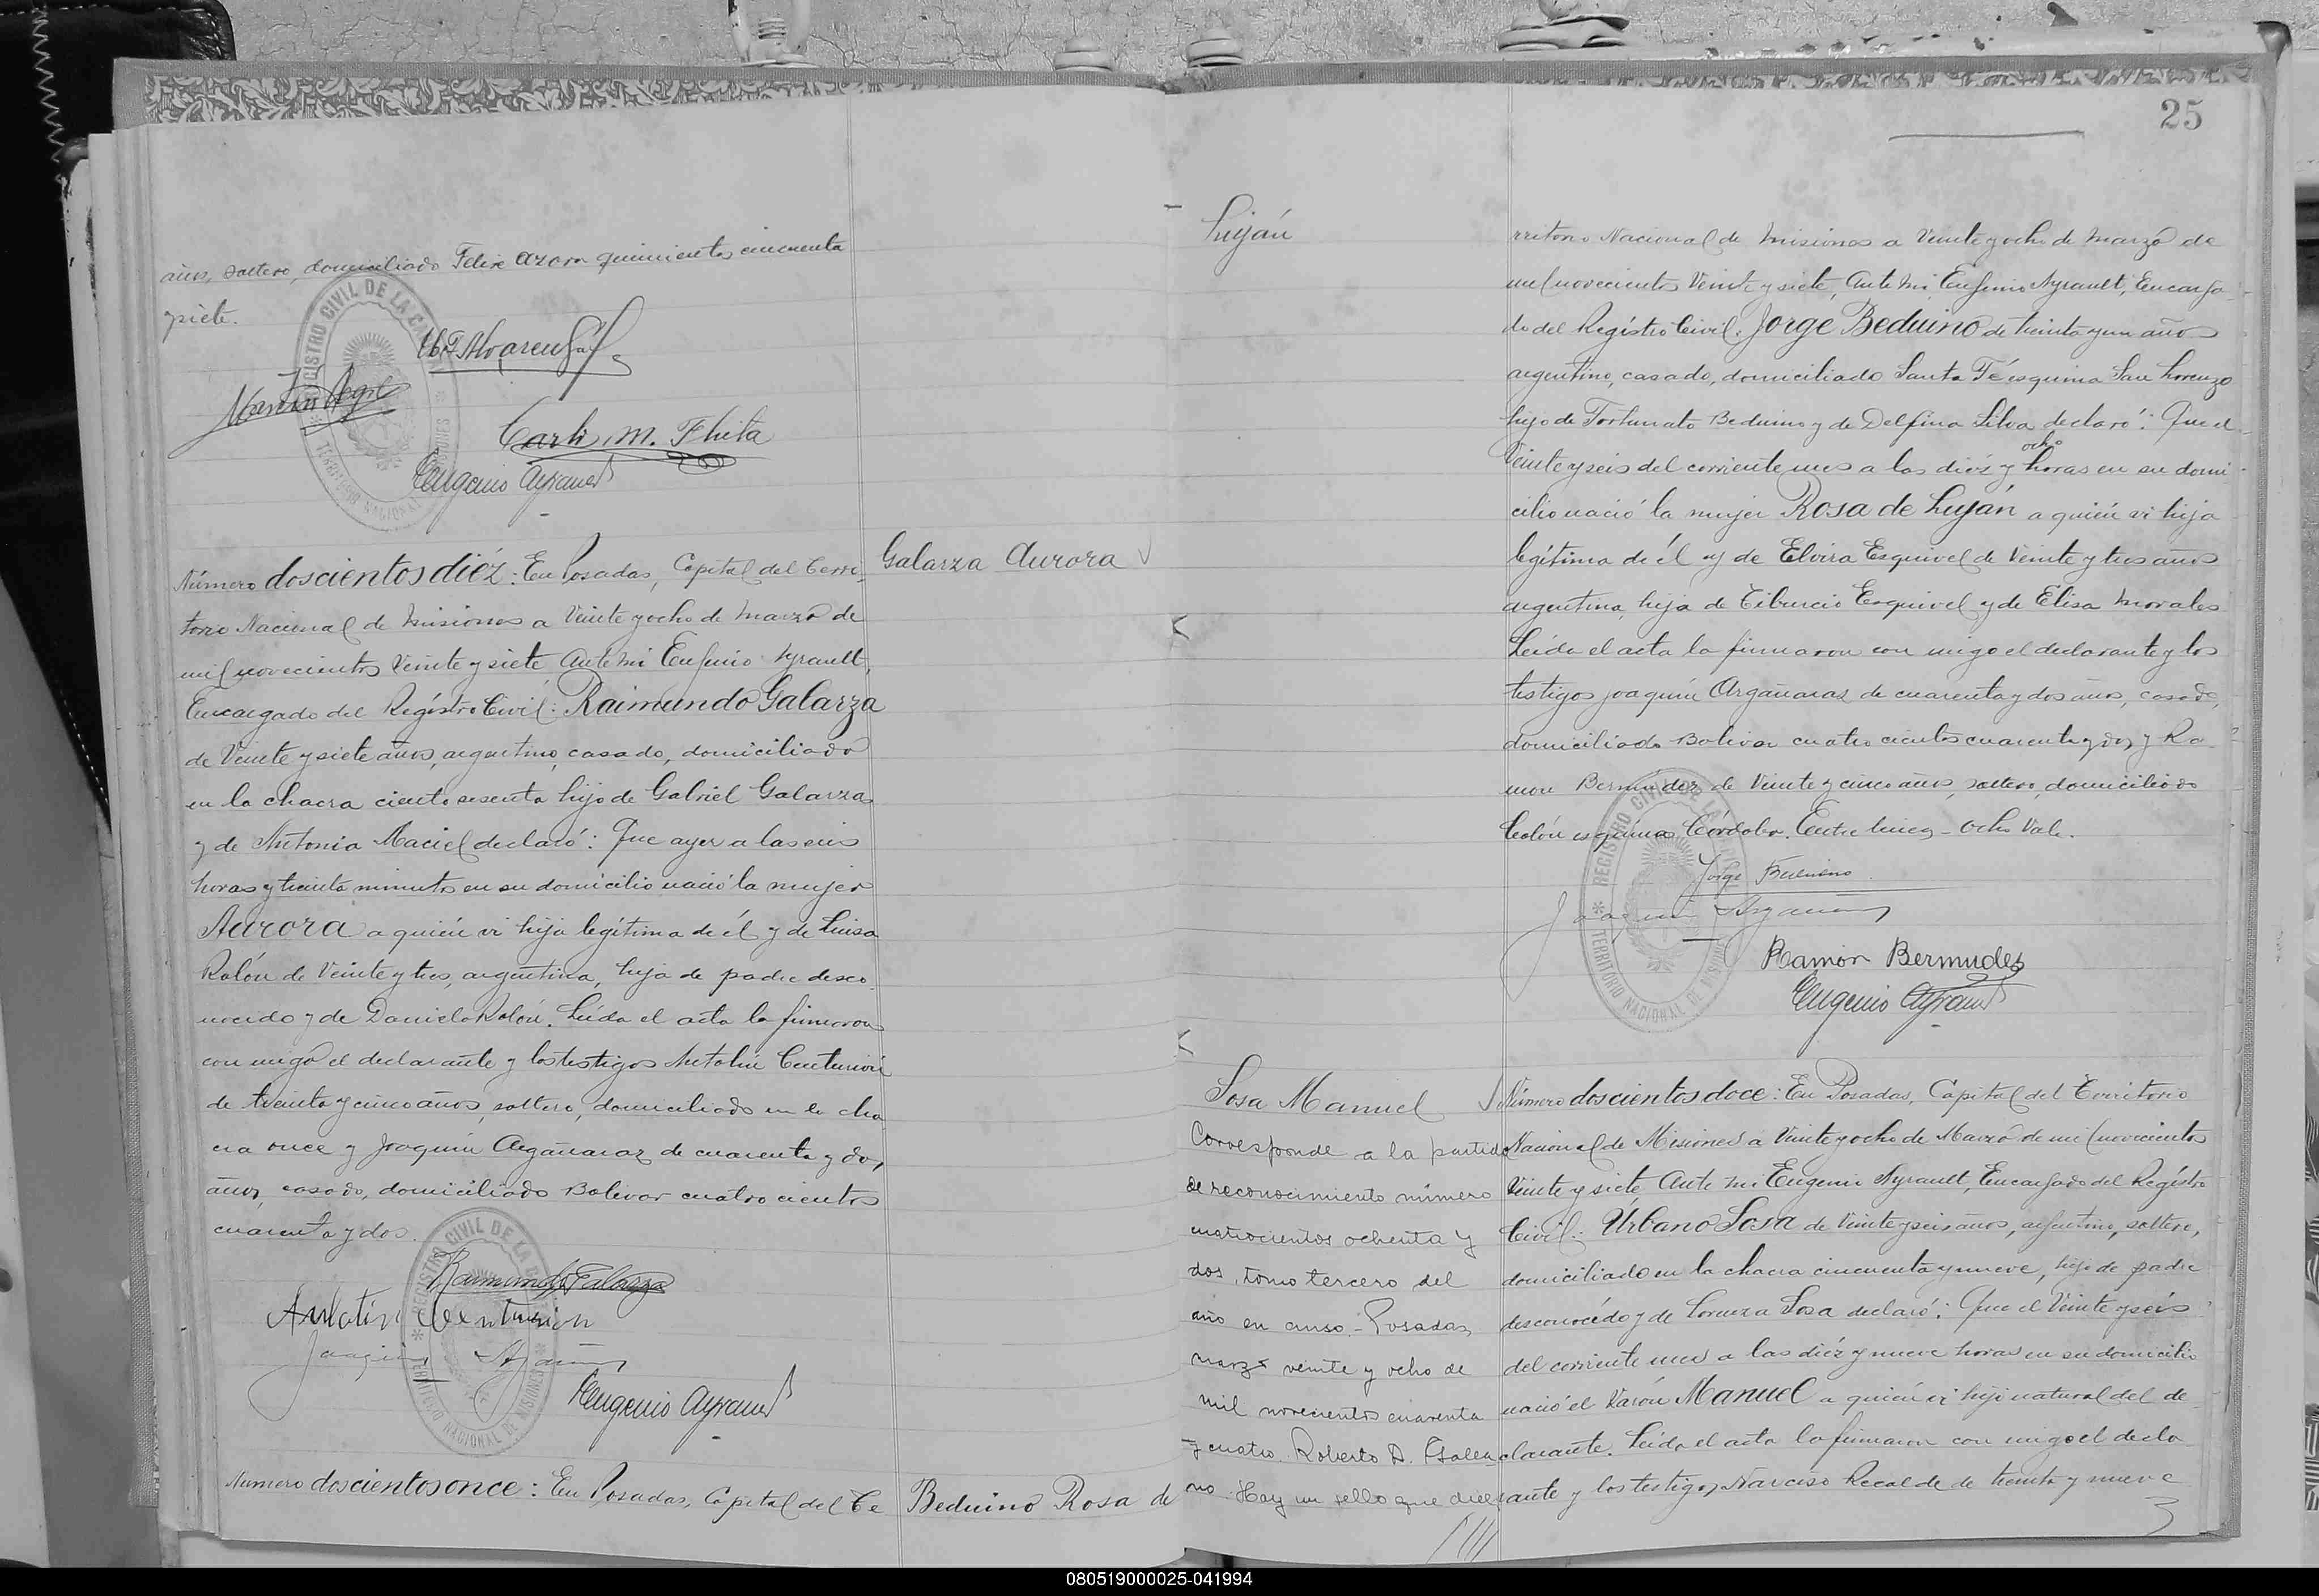 años, soltero, domiciliado Felix Azara quinientos cincuenta
y siete.
Carlos M. Fhita
Eugenio Ayrault
Número doscientos diéz: En Posadas, Capital del Terri-
torio Nacional de Misiones a Veinte y ocho de Marzo de
mil novecientos Veinte y siete, Ante mi Eugenio Ayrault,
Encargado del Registro Civil: Raimundo Galarza
de Veinte y siete años, argentino, casado, domiciliado
en la chacra ciento sesenta hijo de Gabriel Galarza
y de Antonia Maciel declaró: Que ayer a las seis
horas y treinta minutos en su domicilio nació la mujer
Aurora a quién vi hija legítima de él y de Luisa
Rolón de Veinte y tres, argentina, hija de padre desco-
nocido y de Daniela Rolón. Leída el acta la firmaron
con migo el declarante y los testigos Antolín Centurión
de treinta y cinco años, soltero, domiciliado en la cha
cra once y Joaquín Argañaraz de cuarenta y dos
años, casado, domiciliado Bolivar cuatro cientos
cuarenta y dos.
Raimundo Galarza
Antolin Centurion
Joaquin
Eugenio Ayrault
Galarza Aurora
Número doscientos once: En Posadas, Capital del Te
Beduino Rosa de
25
Luján
rritorio Nacional de Misiones a Veinte y ocho de Marzo de
mil novecientos Veinte y siete, Ante mi Eugenio Ayrault, Encarga-
do del Registro Civil: Jorge Beduino de treinta y un años
argentino, casado, domiciliado Santa Fé esquina San Lorenzo
hijo de Fortunato Beduino y de Delfina Silva declaró: Que el
Veinte y seis del corriente mes a las diéz y ocho horas en su domi-
cilio nació la mujer Rosa de Luján a quién vi hija
legítima de él y de Elvira Esquivel de Veinte y tres años
argentina, hija de Tiburcio Esquivel y de Elisa Morales
Leída el acta la firmaron con migo el declarante y los
testigos Joaquín Argañaraz de cuarenta y dos años, casado,
domiciliado Bolivar cuatro cientos cuarenta y dos y Ra-
mon Bermúdez de Veinte y cinco años, soltero, domiciliado
Colón esquina Córdoba. Entre lineas - ocho Vale.
Jorge Beduino
Joaquin
Ramón Bermudez
Eugenio Ayrault
Sosa Manuel
Corresponde a la partida
de reconocimiento número
cuatrocientos ochenta y
dos, tomo tercero del
año en curso.- Posadas,
marzo veinte y ocho de
mil novecientos cuarenta
y cuatro. Roberto A. Galea
no. Hay un sello que dice
Número doscientos doce: En Posadas, Capital del Territorio
Nacional de Misiones a Veinte y ocho de Marzo de mil novecientos
Veinte y siete Ante mi Eugenio Ayrault, Encargado del Registro
Civil: Urbano Sosa de Veinte y seis años, argentino, soltero,
domiciliado en la chacra cincuenta y nueve, hijo de padre
desconocido y de Lorenza Sosa declaró: Que el Veinte y seis
del corriente mes a las diéz y nueve horas en su domicilio
nació el Varón Manuel a quién vi hijo natural del de-
clarante. Leída el acta la firmaron con migo el decla-
rante y los testigos Narciso Recalde de treinta y nueve
080519000025-041994